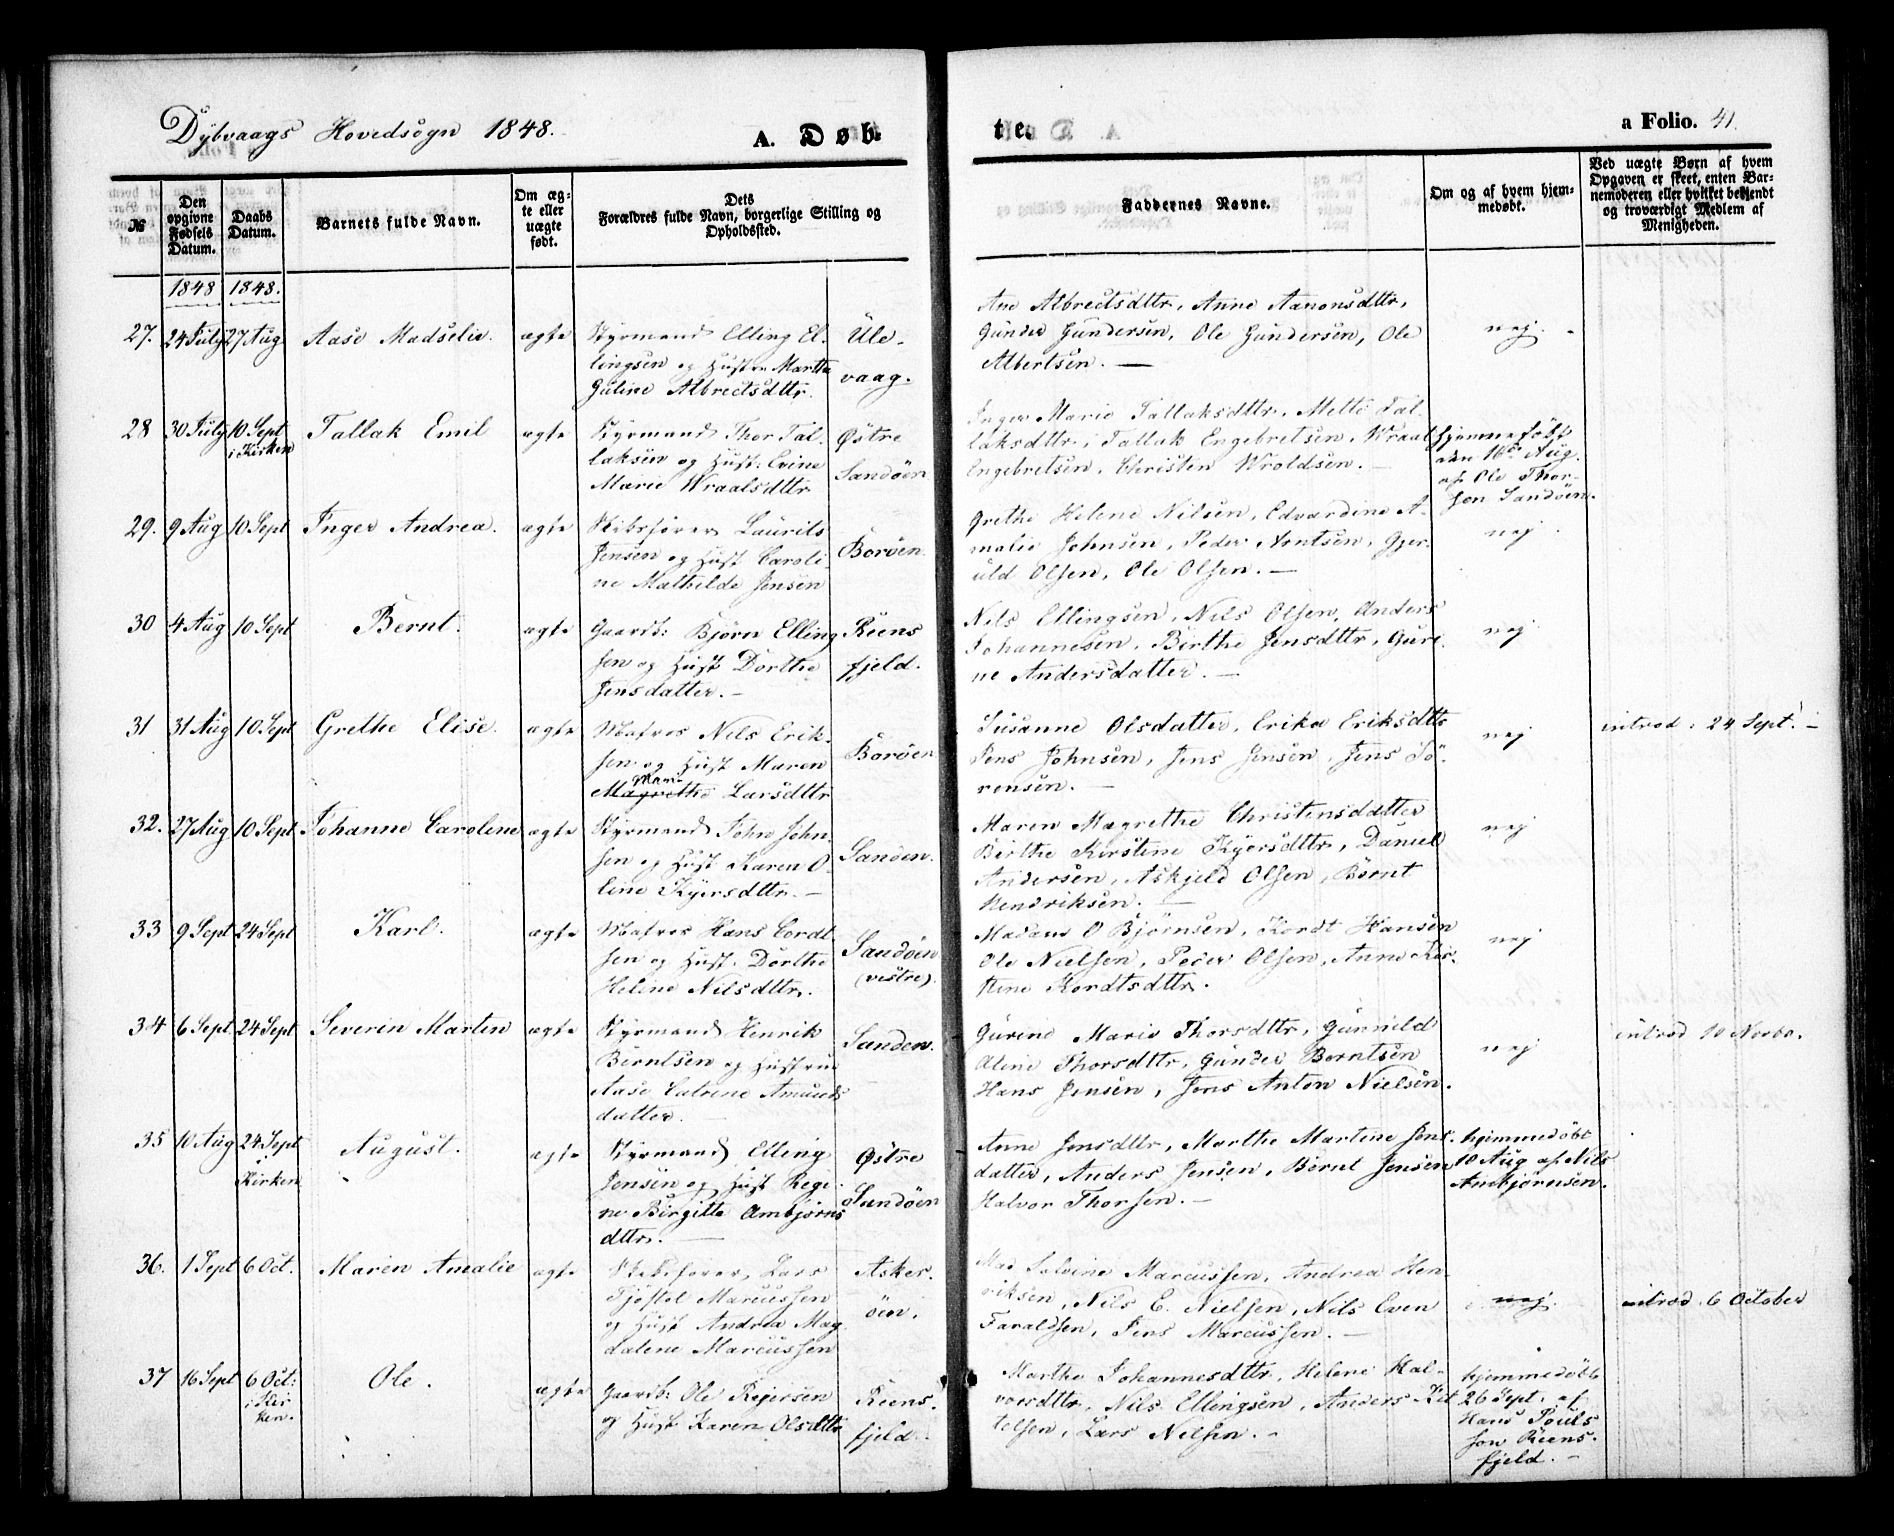 Dybvaags Hovedsogn 1848.
A. Døb
te.
a Folio. 41.
№
Den opgivne Fødsels Datum.
Daabs Datum.
Barnets fulde Navn.
Om ægte eller uægte født.
Dets Forældres fulde Navn, borgerlige Stilling og Opholdssted.
Faddernes Navne.
Om og af hvem hjemmedøbt.
Ved uægte Børn af hvem Opgaven er skeet, enten Barnemoderen eller hvilket bekjendt og troværdigt Medlem af Menigheden.
1848 1848.
27. 24 July 27 Aug. Aase Madselie. ægte
Styrmand Elling El-
lingsen og Hustru Marthe
Guline Albrectsdttr.
Ule-
vaag.
Ane Albrectsdttr, Anne Aanonsdttr,
Gunder Gundersen, Ole Gundersen, Ole
Albertsen. —
nej.
28 30 July 10 Sept i Kirken Tallak Emil ægte
Styrmand Thor Tal-
laksen og Hust: Evine
Marie Wraalsdttr
Østre
Sandøen
Inger Marie Tallaksdttr, Mette Tal-
laksdttr, Tallak Engebretsen, Wraal
Engebretsen, Christen Wroldsen. —
hjemmedøbt
den 16de Aug.
af Ole Thor-
sen Sandøen.
29. 9 Aug 10 Sept Inger Andrea. ægte
Skibsfører Laurits
Jensen og Hust Caroli-
ne Mathilde Jensen
Borøen.
Grethe Helene Nilsen, Edvardine A-
malie Johnsen, Peder Arntsen, Gjer-
uld Olsen, Ole Olsen. —
nej
30 4 Aug 10 Sept Bernt. ægte
Gaardb: Bjørn Elling
sen og Hust Dorthe
Jensdatter. —
Riens
fjeld.
Nils Ellingsen, Nils Olsen, Anders
Johannesen, Birthe Jensdttr, Guri-
ne Andersdatter. —
nej
31 31 Aug 10 Sept Grethe Elise. ægte
Matros Nils Erik-
sen og Hust Maren
Magrethe Larsdttr
Borøen
Susanne Olsdatter, Erika Eriksdttr
Jens Johnsen, Jens Jensen, Jens Sö-
rensen. —
nej
introd: 24 Sept. —
32. 27 Aug 10 Sept Johanne Caroline ægte
Styrmand John John-
sen og Hust Karen O-
line Kyersdttr. —
Sandøen.
Maren Magrethe Christensdatter
Birthe Kirstine Kyersdttr, Daniel
Andersen, Askjeld Olsen, Bernt
Hendriksen. —
nej
33 9 Sept 24 Sept Karl. ægte
Matros Hans Cordt-
sen og Hust. Dorthe
Helene Nilsdttr.
Sandøen
(vestre).
Madam O Bjørnsen, Kordt Hansen
Ole Nielsen, Peder Olsen, Anne Kir-
stine Kordtsdttr.
nej
34 6 Sept 24 Sept Severin Martin ægte
Styrmand Henrik
Berntsen og Hustrue
Aase Catrine Amunds
datter. —
Sanden.
Gurine Marie Thorsdttr, Gunnild
Aline Thorsdttr, Gunder Berntsen
Hans Jensen, Jens Anton Nielsen.
nej
introd 10 Novbr.
35 10 Aug 24 Sept i Kirken August. ægte
Styrmand Elling
Jensen og Hust Regi-
ne Birgitte Ambjørns
dttr. —
Østre
Sandøen
Anne Jensdttr, Marthe Martine Jens-
datter, Anders Jensen, Bernt Jensen
Halvor Thorsen. —
hjemmedøbt
10 Aug af Nils
Ambjørnsen.
36. 1 Sept 6 Oct. Maren Amalie ægte
Skibsfører Lars
Tjøstel Marcussen
og Hust Andrea Mag
dalene Marcussen
Asker-
öen.
Mad Salvine Marcussen, Andrea Hen-
riksen, Nils C. Nielsen, Nils Even
Faraldsen, Jens Marcussen. —
nej.
introd. 6 October
37 16 Sept 6 Oct: i Kir ken. Ole. ægte
Gaardb: Ole Reiersen
og Hust Karen Olsdttr
Riens-
fjeld.
Marthe Johannesdttr, Helene Hal-
vorsdttr, Nils Ellingsen, Anders Kit
telsen, Lars Nilsen. —
hjemmedøbt
26 Sept. af
Hans Pouls
sen Riens-
fjeld. —